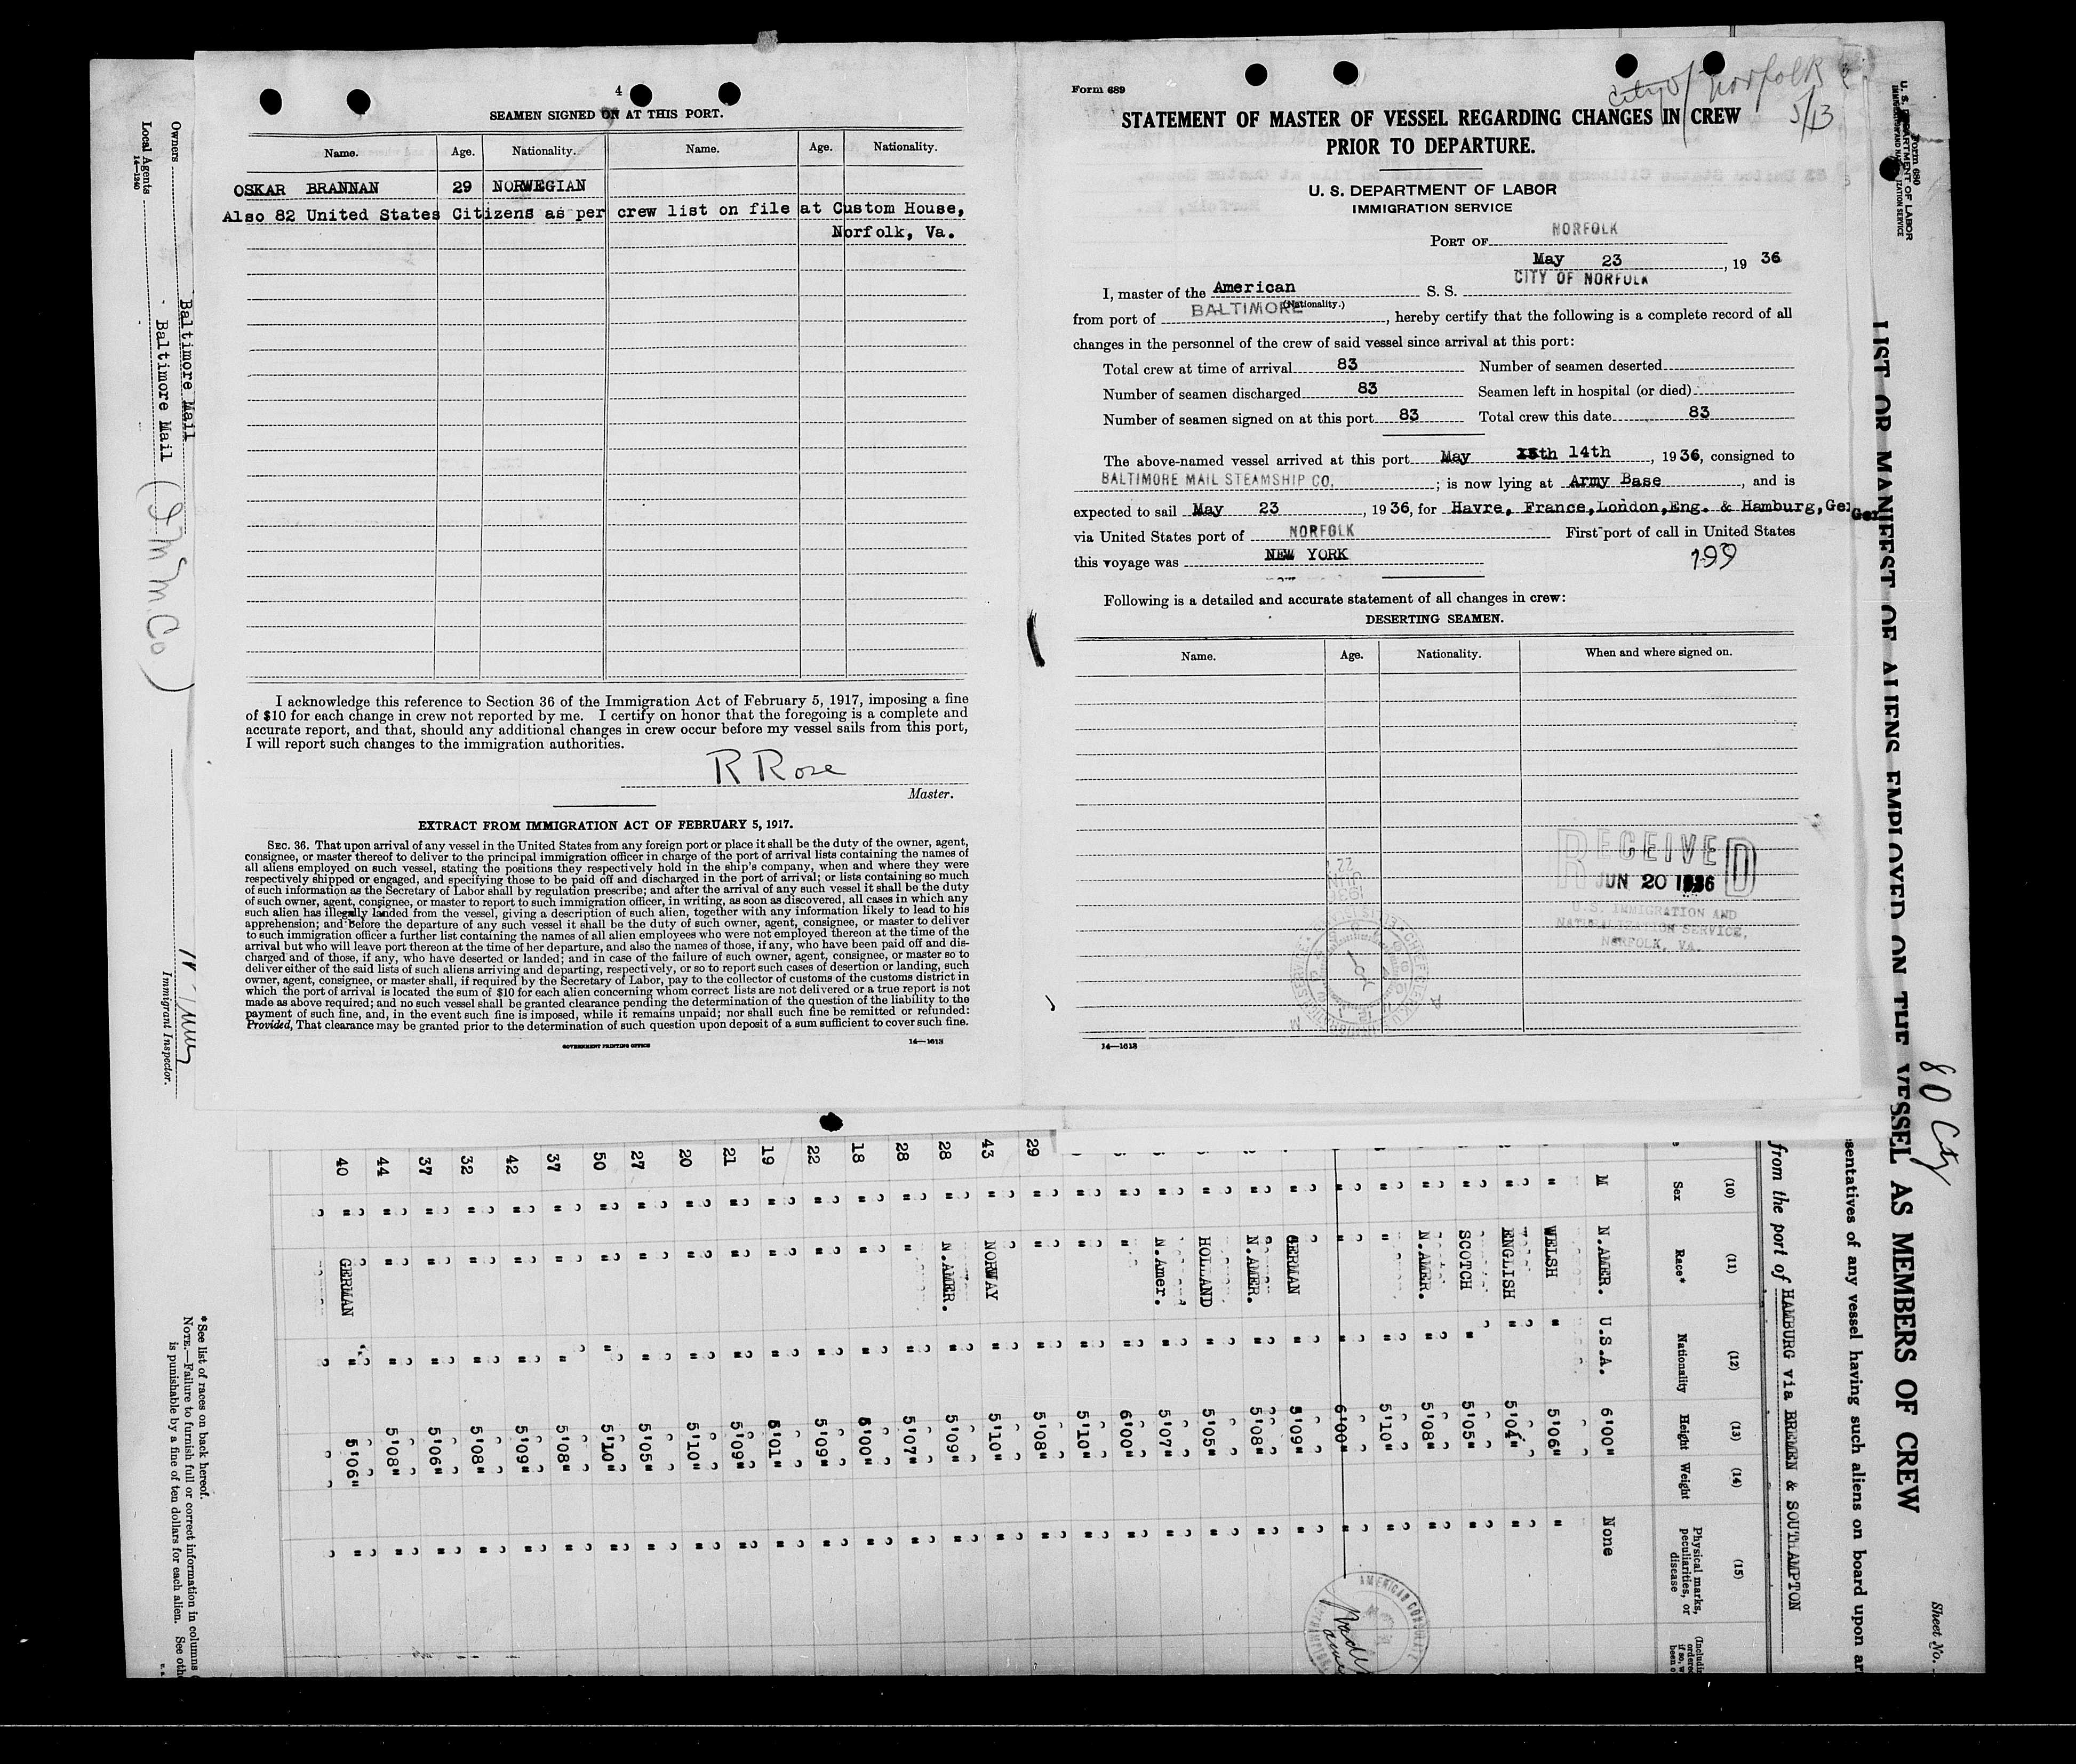 4
SEAMEN SIGNED ON AT THIS PORT.
Name. Age. Nationality. Name. Age. Nationality.
OSKAR BRANNAN 29 NORWEGIAN
Also 82 United States Citizens as per crew list on file at Custom House,
Norfolk, Va.
I acknowledge this reference to Section 36 of the Immigration Act of February 5, 1917, imposing a fine
of $10 for each change in crew not reported by me. I certify on honor that the foregoing is a complete and
accurate report, and that, should any additional changes in crew occur before my vessel sails from this port,
I will report such changes to the immigration authorities.
R Rose
Master.
EXTRACT FROM IMMIGRATION ACT OF FEBRUARY 5, 1917.
SEC. 36. That upon arrival of any vessel in the United States from any foreign port or place it shall be the duty of the owner, agent,
consignee, or master thereof to deliver to the principal immigration officer in charge of the port of arrival lists containing the names of
all aliens employed on such vessel, stating the positions they respectively hold in the ship's company, when and where they were
respectively shipped or engaged, and specifying those to be paid off and discharged in the port of arrival; or lists containing so much
of such information as the Secretary of Labor shall by regulation prescribe; and after the arrival of any such vessel it shall be the duty
of such owner, agent, consignee, or master to report to such immigration officer, in writing, as soon as discovered, all cases in which any
such alien has illegally landed from the vessel, giving a description of such alien, together with any information likely to lead to his
apprehension; and before the departure of any such vessel it shall be the duty of such owner, agent, consignee, or master to deliver
to such immigration officer a further list containing the names of all alien employees who were not employed thereon at the time of the
arrival but who will leave port thereon at the time of her departure, and also the names of those, if any, who have been paid off and dis-
charged and of those, if any, who have deserted or landed; and in case of the failure of such owner, agent, consignee, or master so to
deliver either of the said lists of such aliens arriving and departing, respectively, or so to report such cases of desertion or landing, such
owner, agent, consignee, or master shall, if required by the Secretary of Labor, pay to the collector of customs of the customs district in
which the port of arrival is located the sum of $10 for each alien concerning whom correct lists are not delivered or a true report is not
made as above required; and no such vessel shall be granted clearance pending the determination of the question of the liability to the
payment of such fine, and, in the event such fine is imposed, while it remains unpaid; nor shall such fine be remitted or refunded:
Provided, That clearance may be granted prior to the determination of such question upon deposit of a sum sufficient to cover such fine.
GOVERNMENT PRINTING OFFICE 14—1613
Form 689
City of Norfolk
5/13
STATEMENT OF MASTER OF VESSEL REGARDING CHANGES IN CREW
PRIOR TO DEPARTURE.
U. S. DEPARTMENT OF LABOR
IMMIGRATION SERVICE
PORT OF NORFOLK
May 23, 19 36
I, master of the American S. S. CITY OF NORFOLK
(Nationality.)
from port of BALTIMORE, hereby certify that the following is a complete record of all
changes in the personnel of the crew of said vessel since arrival at this port:
Total crew at time of arrival 83 Number of seamen deserted
Number of seamen discharged 83 Seamen left in hospital (or died)
Number of seamen signed on at this port 83 Total crew this date 83
The above-named vessel arrived at this port May 14th, 19 36, consigned to
BALTIMORE MAIL STEAMSHIP CO. ; is now lying at Army Base, and is
expected to sail May 23, 19 36, for Havre, France, London, Eng. & Hamburg, Ger
via United States port of NORFOLK First port of call in United States
this voyage was NEW YORK
193
Following is a detailed and accurate statement of all changes in crew:
DESERTING SEAMEN.
Name. Age. Nationality. When and where signed on.
RECEIVED
JUN 20 1936
U.S. IMMIGRATION AND
NATURALIZATION SERVICE,
NORFOLK, VA.
14—1613
Form 680
U. S. DEPARTMENT OF LABOR
LIST OR MANIFEST OF ALIENS EMPLOYED ON THE VESSEL AS MEMBERS OF CREW
80 City
Sheet No.
sentatives of any vessel having such aliens on board upon arr
from the port of HAMBURG via BREMEN & SOUTHAMPTON
(10) (11) (12) (13) (14) (15)
Sex Race* Nationality Height Weight Physical marks, peculiarities, or disease
M N.AMER. U.S.A. 6'00" None
" WELSH " 5'06" "
" ENGLISH " 5'04" "
" SCOTCH " 5'05" "
" N.AMER. " 5'08" "
" " " 5'10" "
" " " 6'00" "
" GERMAN " 5'09" "
" N.AMER. " 5'08" "
" HOLLAND " 5'05" "
" N.Amer. " 5'07" "
" " " 6'00" "
" " " 5'10" "
29 " " " 5'08" "
43 " NORWAY " 5'10" "
28 " N.AMER. " 5'09" "
28 " " " 5'07" "
18 " " " 5'00" "
22 " " " 5'09" "
19 " " " 5'01" "
21 " " " 5'09" "
20 " " " 5'10" "
27 " " " 5'05" "
50 " " " 5'10" "
37 " " " 5'08" "
42 " " " 5'09" "
32 " " " 5'08" "
37 " " " 5'06" "
44 " " " 5'08" "
40 " GERMAN " 5'06" "
AMERICAN CONSULATE
Owners Baltimore Mail
Local Agents Baltimore Mail (I M M Co)
14—1240
Immigrant Inspector.
* See list of races on back hereof.
NOTE.—Failure to furnish full or correct information in columns
is punishable by a fine of ten dollars for each alien. See oth